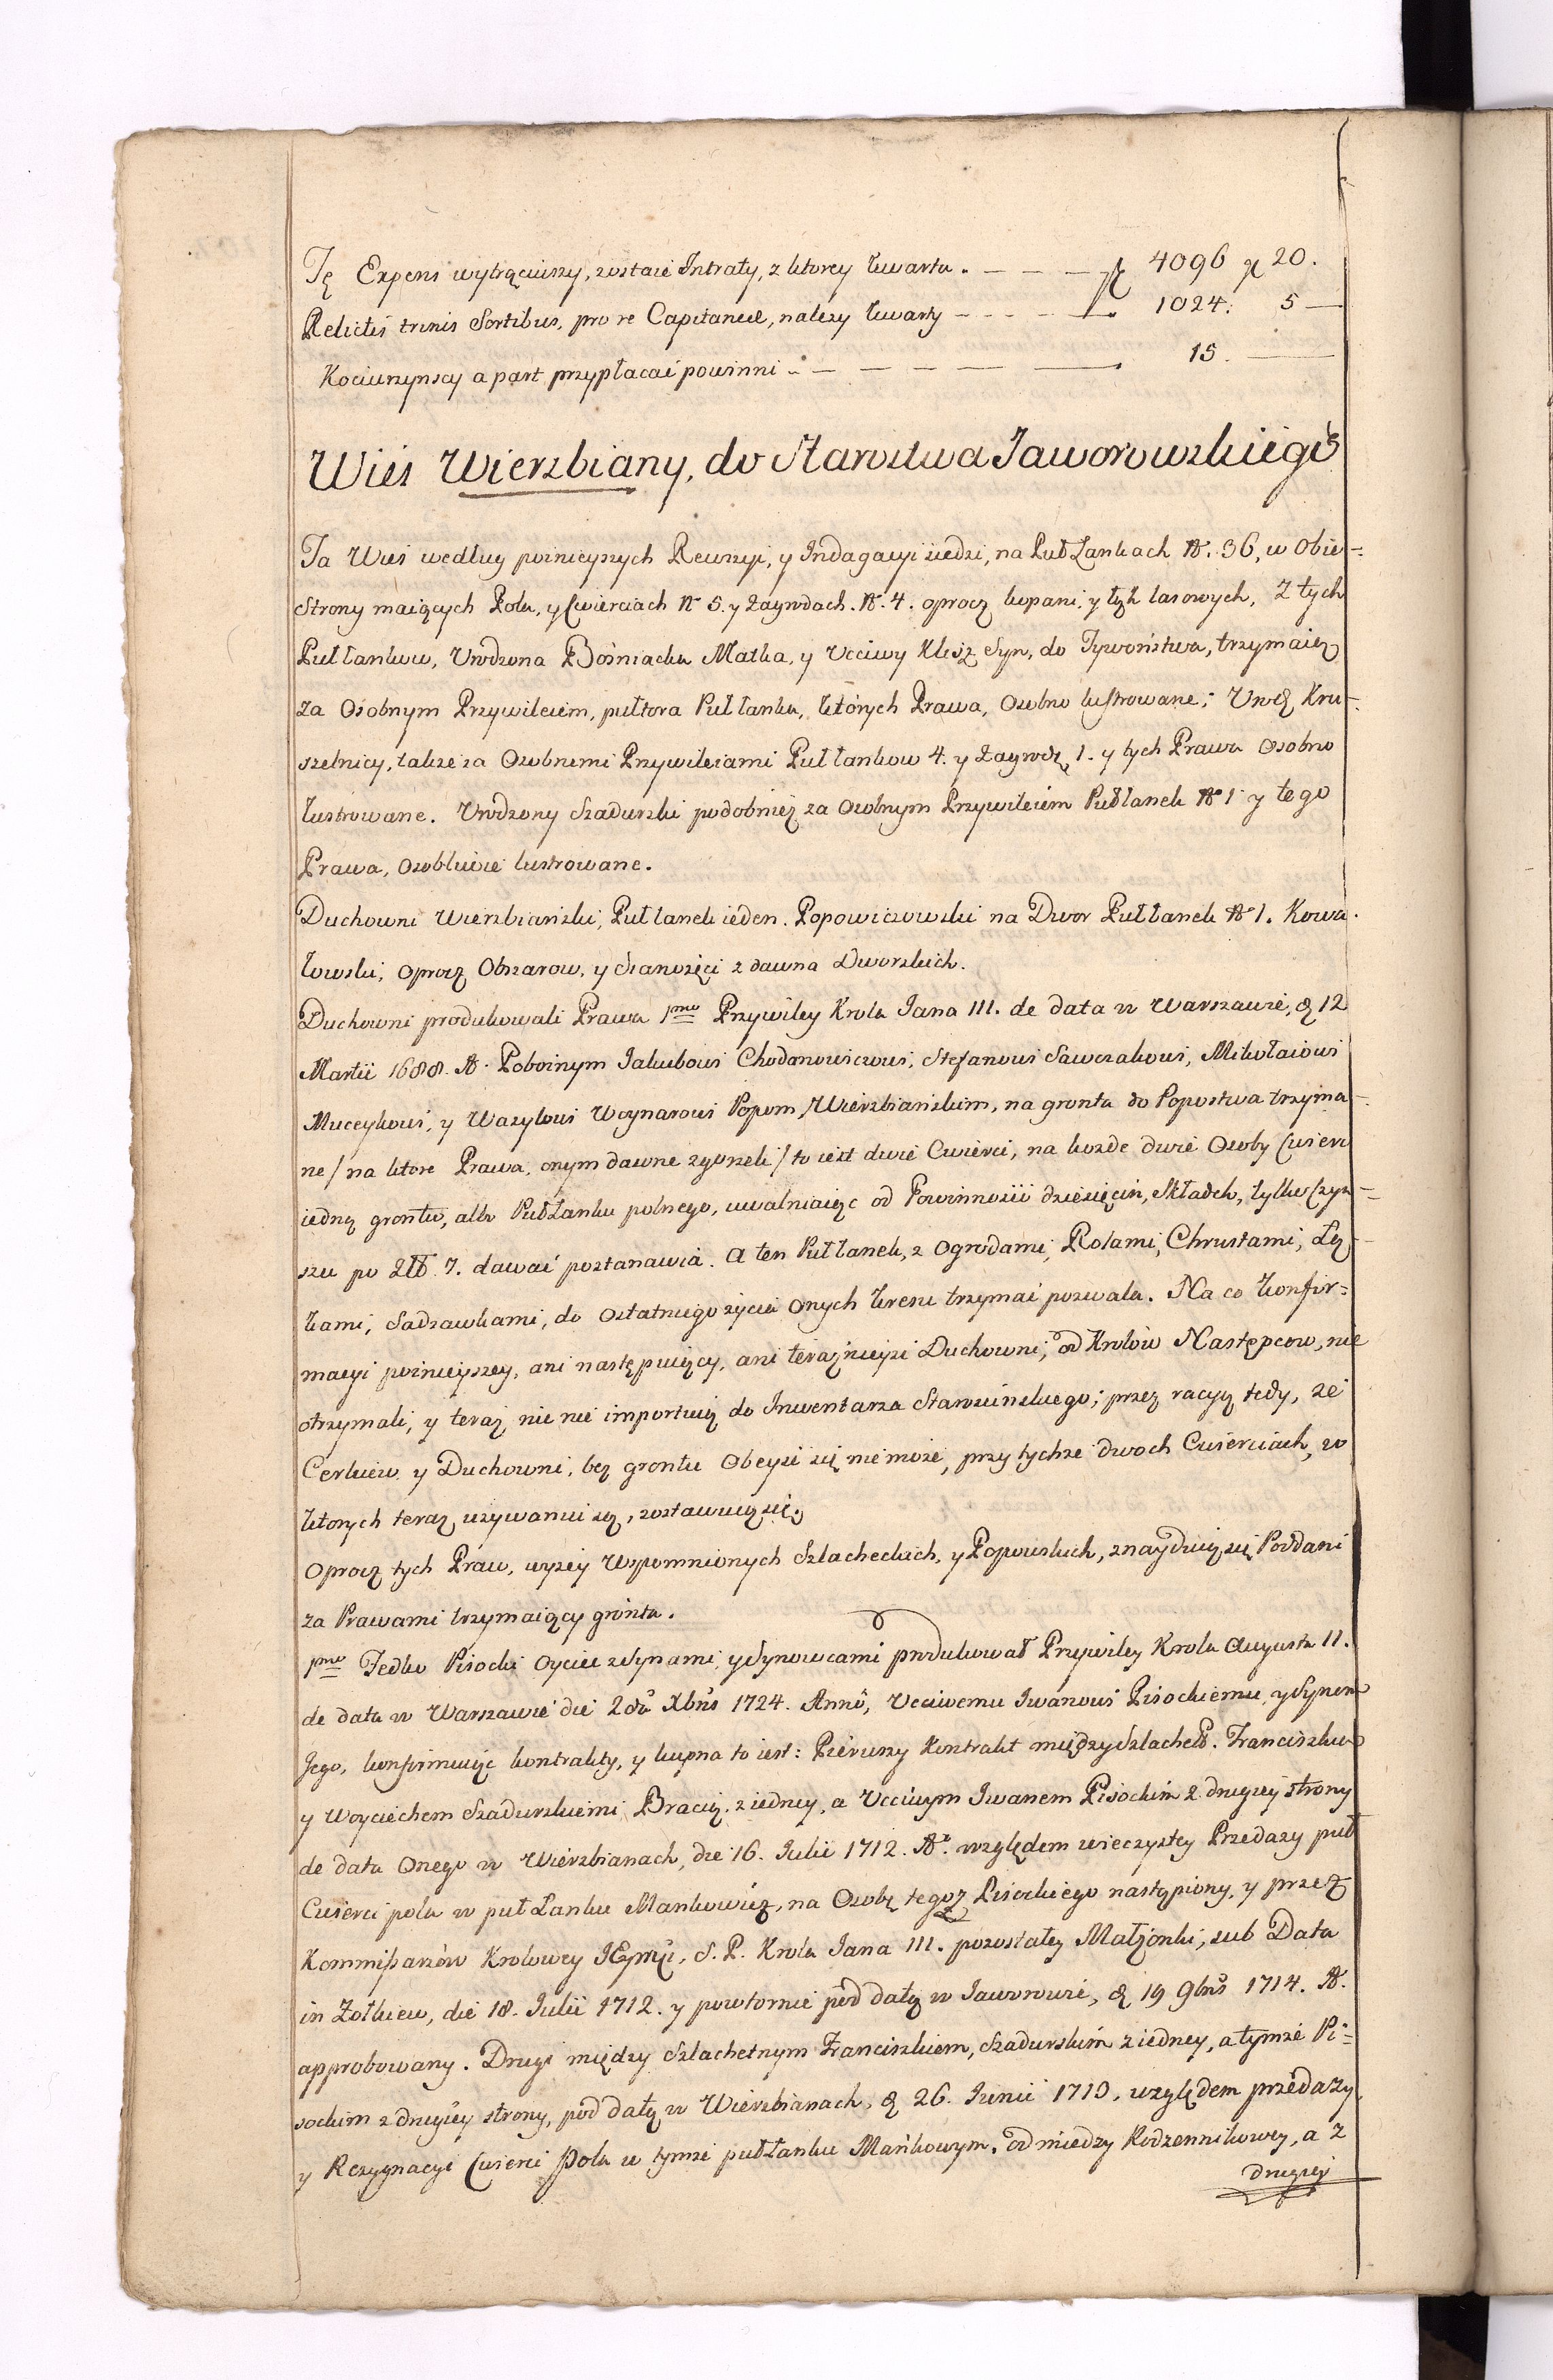 Tę Expens wytrąciwszy, zostaie Intraty, z ktorey kwarta. — — — zł 4096 gr 20.
Relictis trinis Sortibus, pro re Capitaneal, należy kwarty — — — 1024. 5 —
Kociurzynscy a part przypłacać powinni — — — — — 15. —
Wieś Wierzbiany, do Starostwa Jaworowskiego
Ta Wieś według poznieyszych Rewizyi, y Indagacyi siedzi, na Puł Łankach N. 36, w Obie-
Strony maiących Pola, y Cwierciach N 5. y Zagrodach. N. 4. oprocz kopani, y łąk lasowych, Z tych
Puł łankow, Urodzona Bośniacka Matka, y Uczciwy Klesz Syn, do Tywoństwa, trzymaią
za Osobnym Przywileiem, pułtora Puł łanka, których Prawa, osobno lustrowane; Urodz Kru-
szelnicy, także za Osobnemi Przywileiami Puł łankow 4. y Zagrodę 1. y tych Prawa osobno
lustrowane. Urodzony Szadurski podobnież za osobnym Przywileiem Pułłanek N 1 y tego
Prawa, osobliwie lustrowane.
Duchowni Wierzbiański, Puł łanek ieden. Popowiczowski na Dwor Pułłanek N 1. Kowa-
lowski, oprocz Obszarow, y Sianożęci z dawna Dworskich.
Duchowni produkowali Prawa 1mo Przywiley Krola Jana III. de data w Warszawie, d 12
Martii 1688. A. Pobożnym Jakubowi Chodanowiczowi, Stefanowi Sawczakowi, Mikołaiowi
Muceykowi, y Wasylowi Woynarowi Popom Wierzbiańskim, na gronta do Popostwa trzyma-
ne / na ktore Prawa, onym dawne zgorzeli / to iest dwie Cwierci, na każde dwie Osoby Cwierc
iedną grontu, albo Puł Łanku polnego, uwalniaiąc od Powinności dziesięcin, Składek, tylko Czyn-
szu po Zł. 7. dawać postanawia. A ten Puł łanek, z Ogrodami, Rolami, Chrustami, Łą-
kami, Sadzawkami, do ostatniego życia onych kresu trzymać pozwala. Na co konfir-
macyi poznieyszey, ani następuiący, ani teraznieysi Duchowni, od Krolow Następcow, nie
otrzymali, y teraz nic nie importuią do Inwentarza Starościnskiego; przez racyą tedy, że
Cerkiew y Duchowni, bez grontu obeysc się nie może, przy tychże dwoch Cwierciach, w
ktorych teraz używaniu są, zostawuią się.
Oprocz tych Praw, wyżey wspomnionych Szlacheckich, y Popowskich, znayduią się Poddani
za Prawami trzymaiący gronta.
1mo Fedko Pisocki Oyciec z Synami, y Synowcami produkował Przywiley Krola Augusta II.
de data w Warszawie die 2da Xbris 1724. Anno, Uczciwemu Iwanowi Pisockiemu, y Synom
Jego, konfirmuiąc kontrakty, y kupna to iest: Pierwszy Kontrakt między Szlachet. Franciszkiem
y Woyciechem Szadurskiemi Bracią, z iedney, a Uczciwym Iwanem Pisockim z drugiey strony
de data Onego w Wierzbianach, die 16. Julii 1712. A. względem wieczystey Przedaży puł
Cwierci pola w puł Łanku Mankowicz, na Osobę tegoż Pisockiego nastąpiony, y przez
Kommissarzow Krolowey JEymci, S. P. Krola Jana III. pozostałey Małżonki, sub Data
in Zołkiew, die 18. Julii 1712. y powtornie pod datą w Jaworowie, d 19 9bris 1714. A.
approbowany. Drugi między Szlachetnym Franciszkiem, Szadurskim z iedney, a tymże Pi-
sockim z drugiey strony, pod datą w Wierzbianach, d 26. Junii 1713, względem przedaży,
y Rezygnacyi Cwierci Pola w tymże pułłanku Mańkowym, od miedzy Kodzennikowey, a z
drugiey